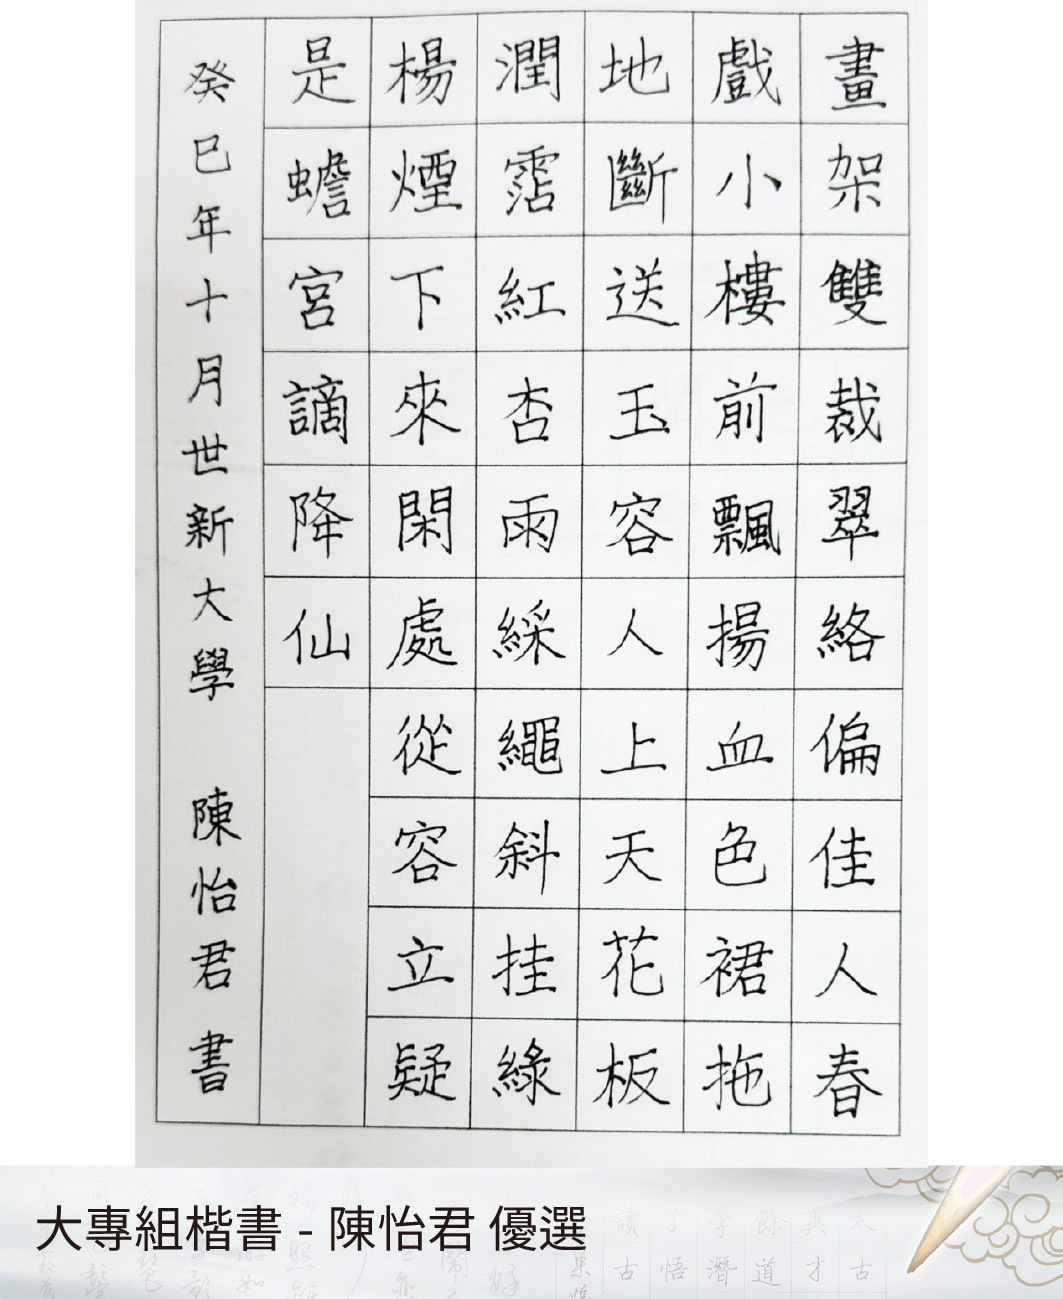 畫架雙裁翠絡偏佳人春
戲小樓前飄揚血色裙拖
地斷送玉容人上天花板
潤霑紅杏雨綵繩斜挂綠
楊煙下來閑處從容立疑
是蟾宮謫降仙
癸巳年十月世新大學 陳怡君書
大專組楷書 - 陳怡君 優選